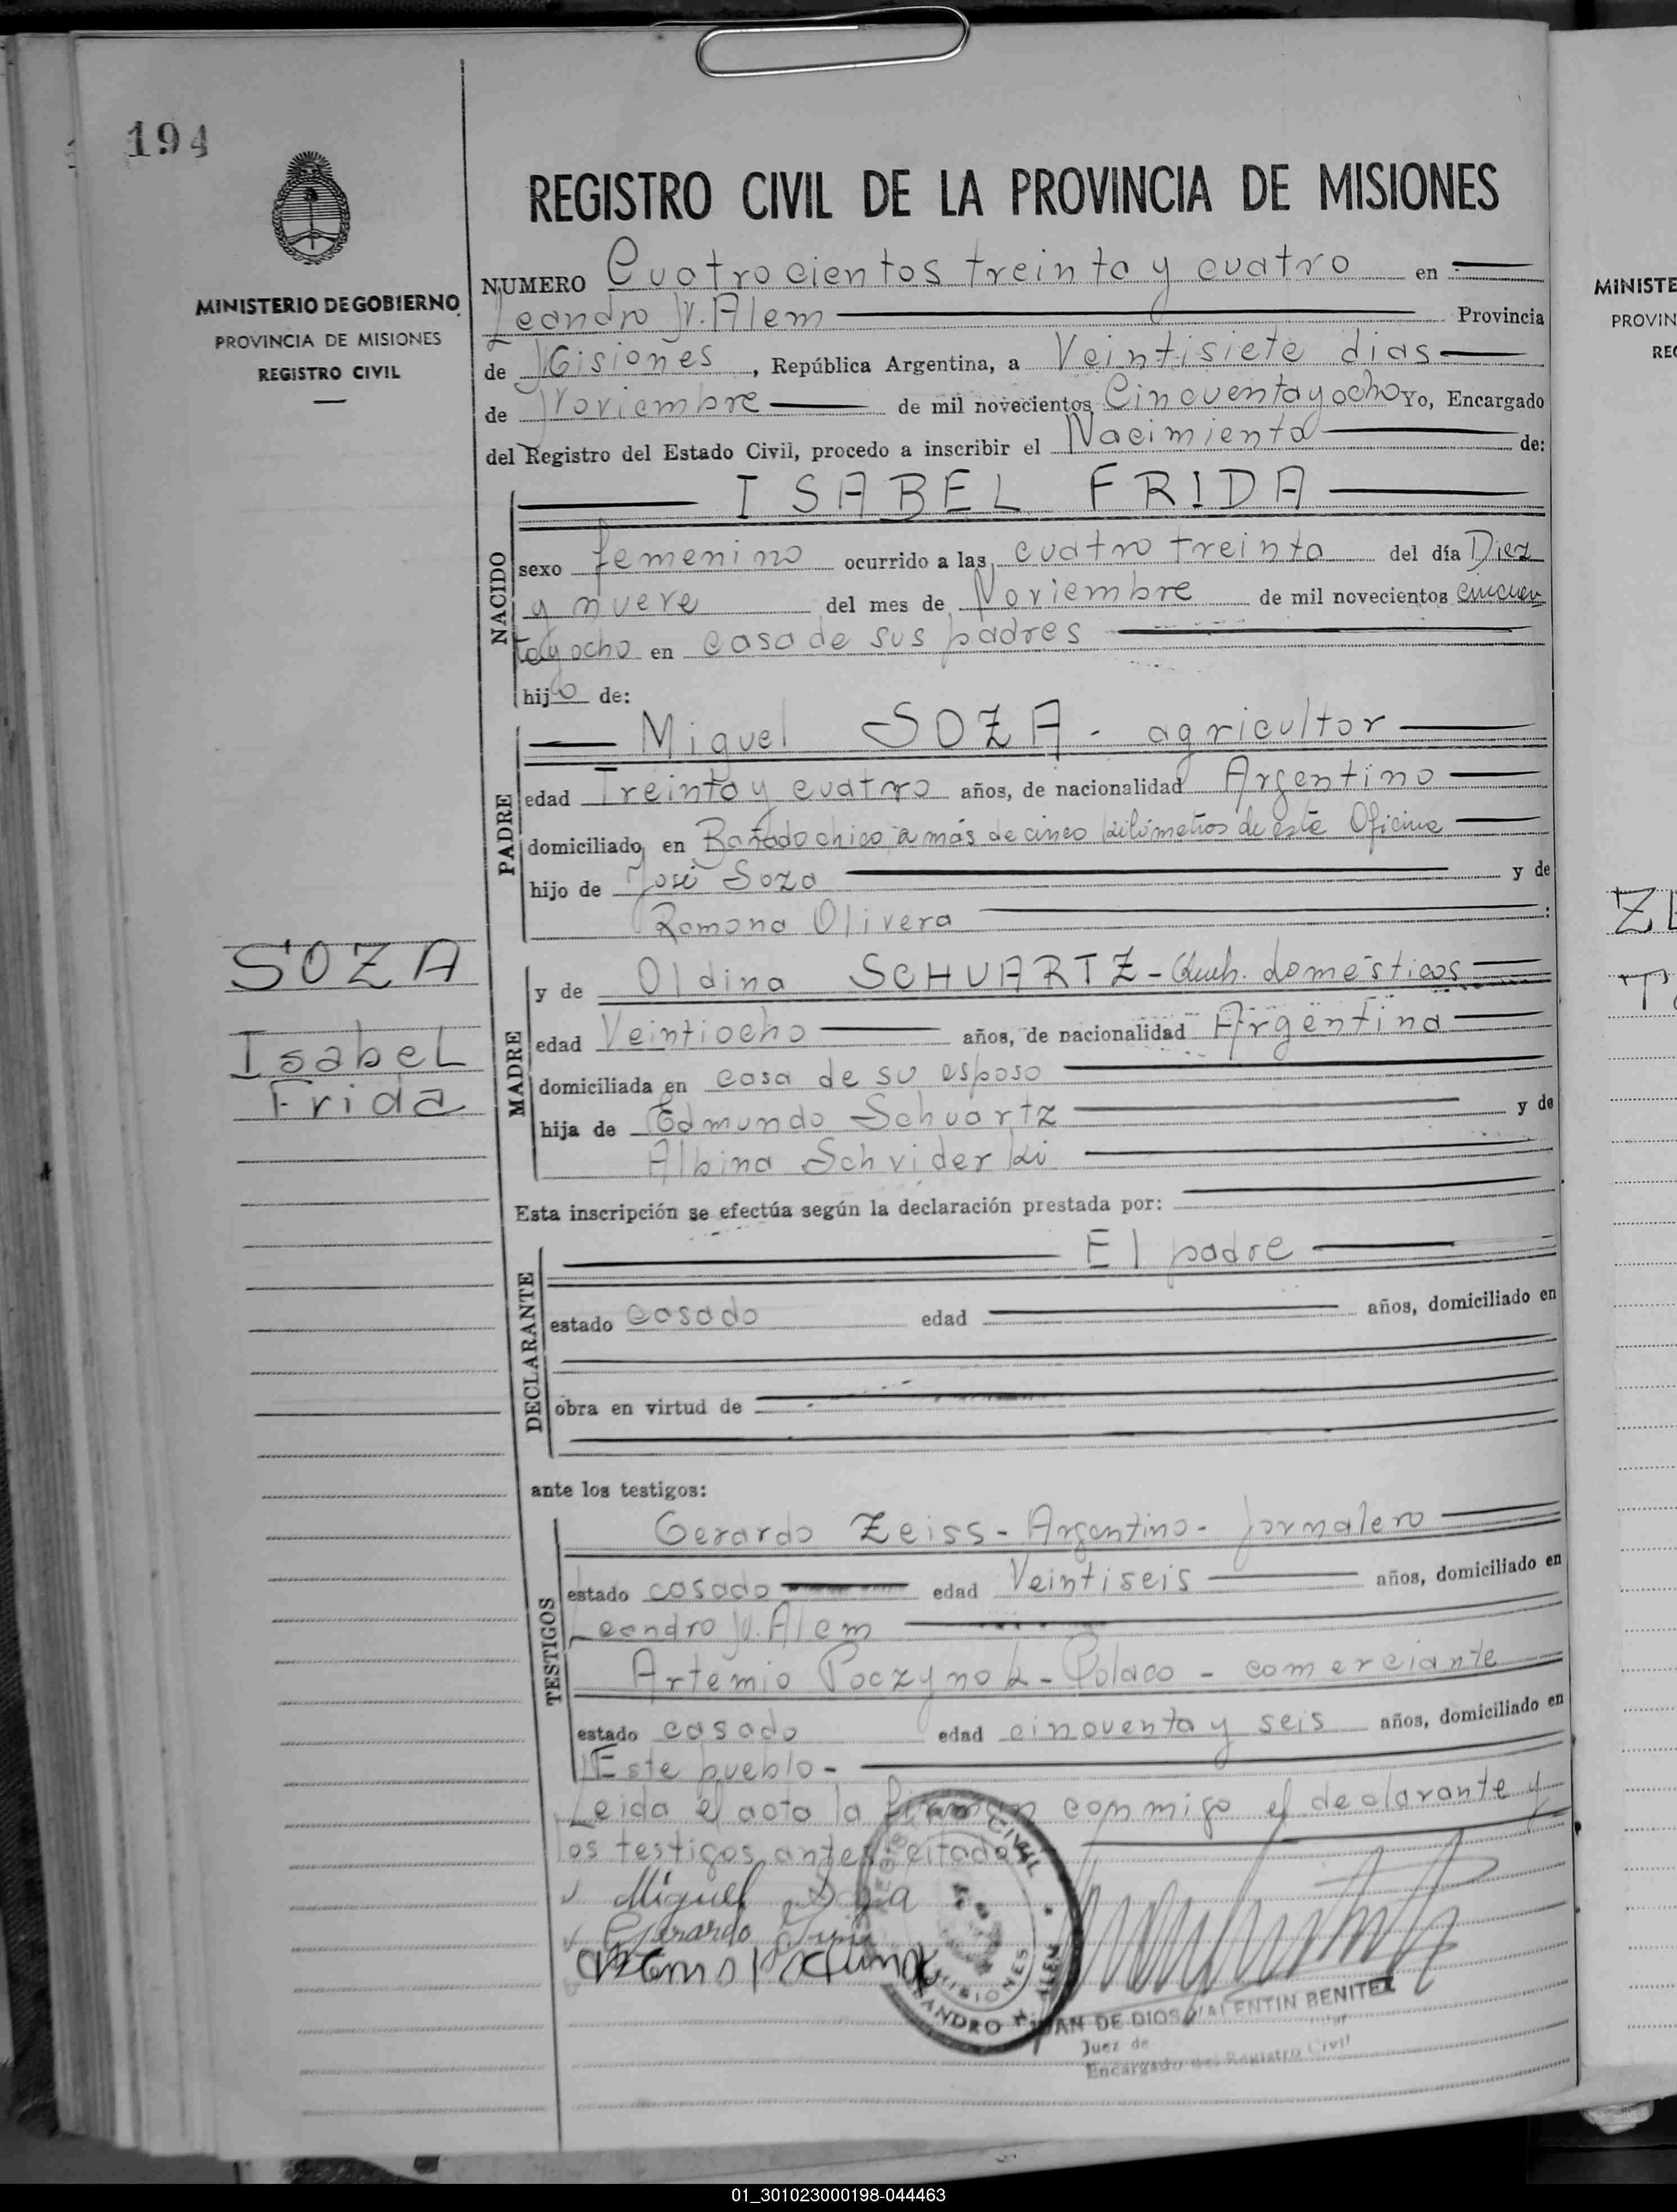 194
MINISTERIO DE GOBIERNO
PROVINCIA DE MISIONES
REGISTRO CIVIL
REGISTRO CIVIL DE LA PROVINCIA DE MISIONES
NUMERO Cuatrocientos treinta y cuatro en
Leandro N. Alem Provincia
de Misiones, República Argentina, a Veintisiete dias
de Noviembre de mil novecientos Cincuenta y ocho Yo, Encargado
del Registro del Estado Civil, procedo a inscribir el Nacimiento de:
NACIDO
ISABEL FRIDA
sexo femenino ocurrido a las cuatro treinta del día Diez
y nueve del mes de Noviembre de mil novecientos cincuen
ta y ocho en casa de sus padres
hijo de:
PADRE
Miguel SOZA - agricultor
edad Treinta y cuatro años, de nacionalidad Argentino
domiciliado en Bañado chico a más de cinco kilómetros de este Oficina
hijo de José Soza y de
Ramona Olivera :
SOZA
Isabel
Frida
MADRE
y de Oldina SCHUARTZ - Queh. domésticos
edad Veintiocho años, de nacionalidad Argentina
domiciliada en casa de su esposo
hija de Edmundo Schuartz y de
Albina Schviderki
Esta inscripción se efectúa según la declaración prestada por:
DECLARANTE
El padre
estado casado edad años, domiciliado en
obra en virtud de
ante los testigos:
TESTIGOS
Gerardo Zeiss - Argentino - jornalero
estado casado edad Veintiseis años, domiciliado en
Leandro N. Alem
Artemio Poczynok - Polaco - comerciante
estado casado edad cincuenta y seis años, domiciliado en
Este pueblo -
Leida el acta la firman conmigo el declarante y
los testigos antes citados
Miguel Soza
Gerardo
CIVIL
MISIONES
LEANDRO N. ALEM
JUAN DE DIOS VALENTIN BENITEZ
Juez de
Encargado del Registro Civil
MINISTE
PROVIN
RE
01_301023000198-044463